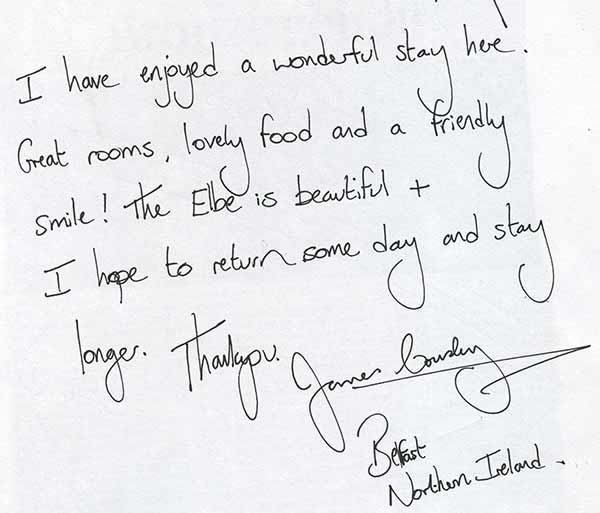 I have enjoyed a wonderful stay here!
Great rooms, lovely food and a friendly
smile! The Elbe is beautiful +
I hope to return some day and stay
longer. Thankyou.
James
Belfast
Northern Ireland.